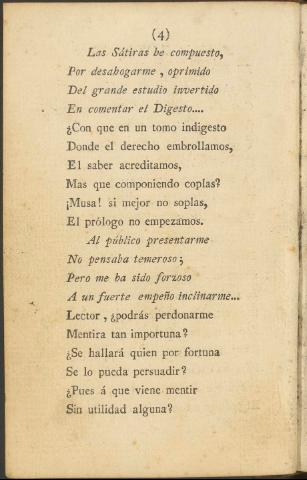 (4)
Las Sátiras he compuesto,
Por desahogarme, oprimido
Del grande estudio invertido
En comentar el Digesto....
¿Con que en un tomo indigesto
Donde el derecho embrollamos,
El saber acreditamos,
Mas que componiendo coplas?
¡Musa! si mejor no soplas,
El prólogo no empezamos.
Al público presentarme
No pensaba temeroso;
Pero me ha sido forzoso
A un fuerte empeño inclinarme...
Lector, ¿podrás perdonarme
Mentira tan importuna?
¿Se hallará quien por fortuna
Se lo pueda persuadir?
¿Pues á que viene mentir
Sin utilidad alguna?